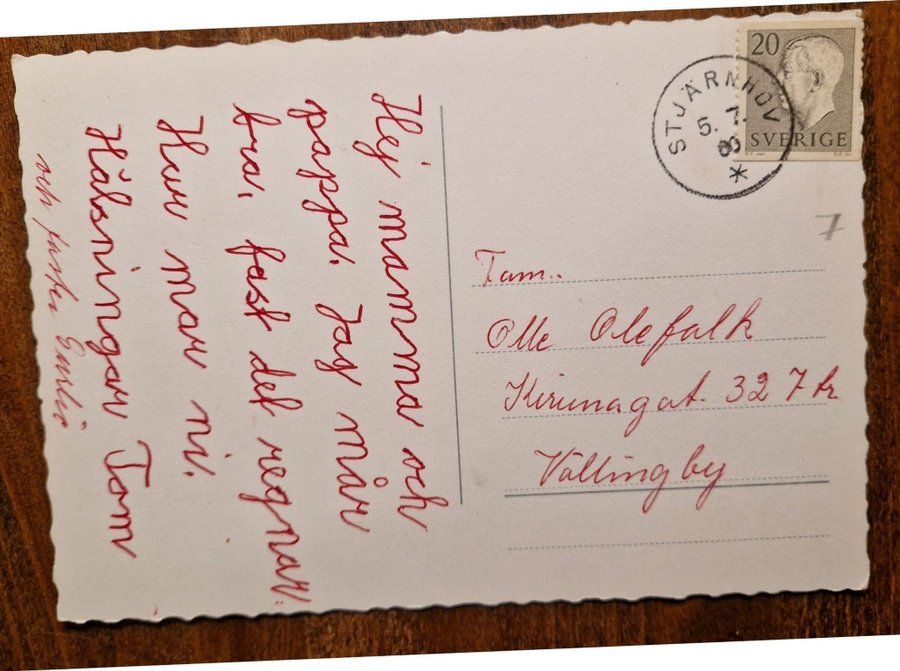 Hej mamma och
pappa. Jag mår
bra, fast det regnar.
Hur mar ni.
Hälsningar Tom
och faster
20
SVERIGE
STJÄRNHOV
5. 7.
7
Fam.
Olle Olefalk
Kirunagat. 32 7 tr
Vällingby